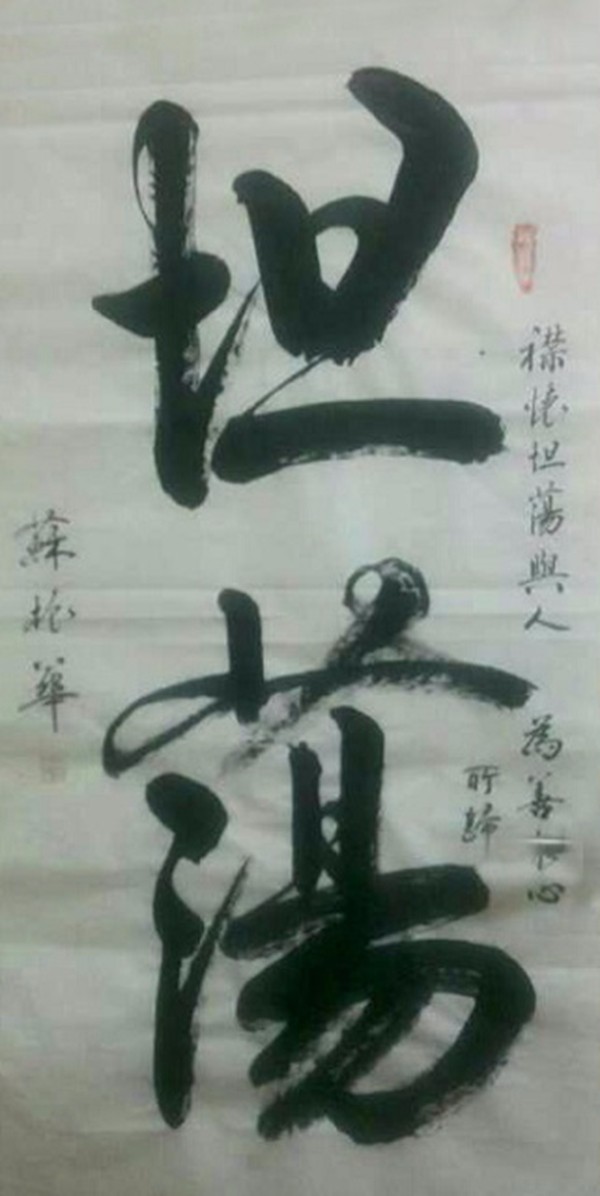 坦蕩
襟懷坦蕩與人
為善良心
所歸
蘇振華